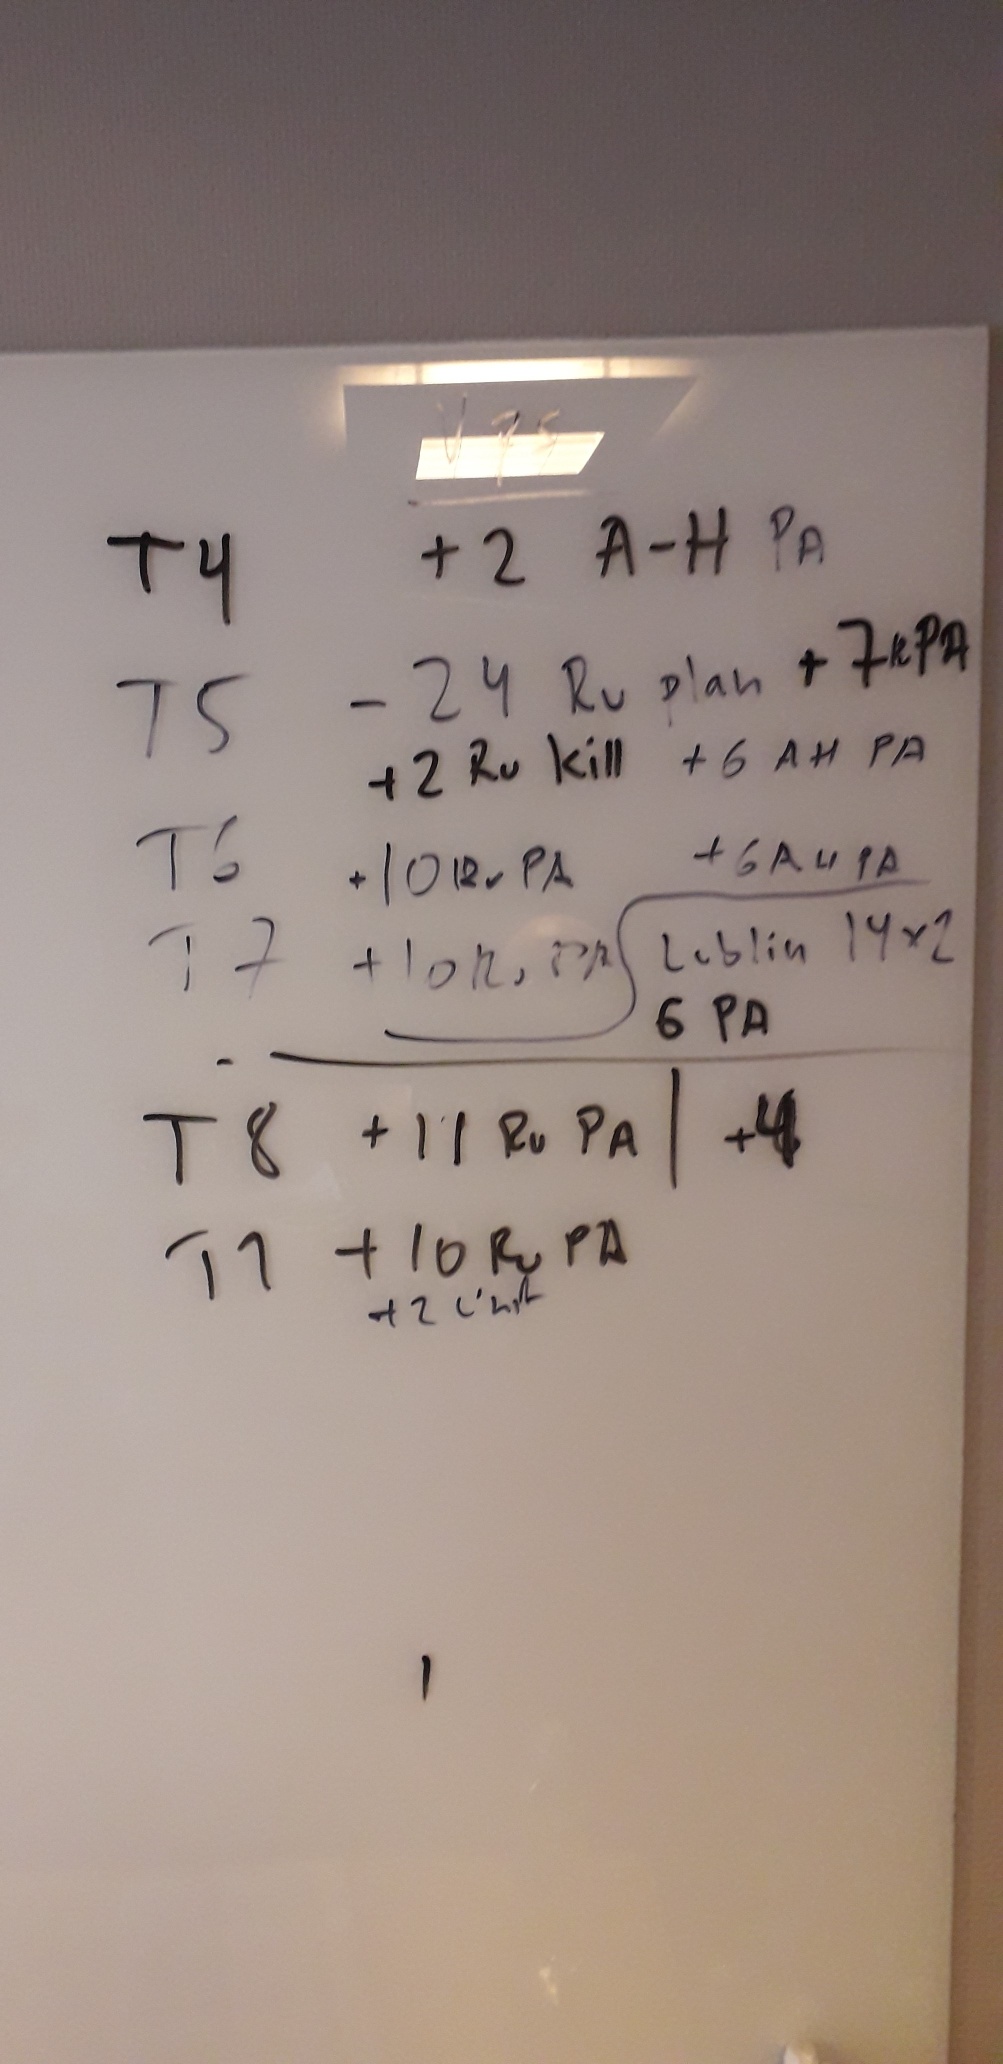 VPs
T4 +2 A-H PA
T5 -24 Ru plan +7RPA
+2 Ru kill +6 AH PA
T6 +10 Ru PA +6 AH PA
T7 +10 Ru PA Lublin 14x2
6 PA
T8 +11 Ru PA | +4
T9 +10 Ru PA
+2 Unit